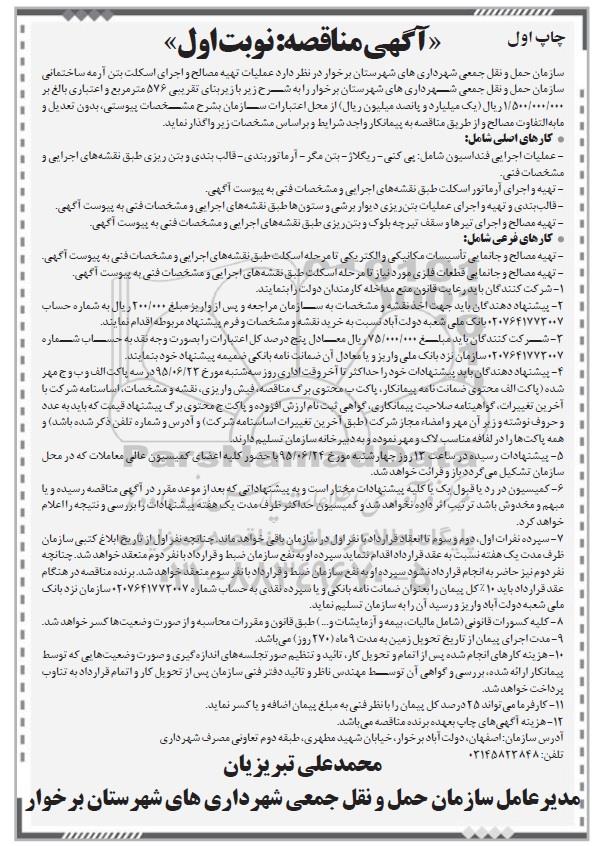 چاپ اول
«آگهی مناقصه: نوبت اول»
سازمان حمل و نقل جمعی شهرداری های شهرستان برخوار در نظر دارد عملیات تهیه مصالح و اجرای اسکلت بتن آرمه ساختمانی
سازمان حمل و نقل جمعی شهرداری های شهرستان برخوار را به شرح زیر با زیربنای تقریبی ۵۷۶ مترمربع و اعتباری بالغ بر
۱/۵۰۰/۰۰۰/۰۰۰ ریال (یک میلیارد و پانصد میلیون ریال) از محل اعتبارات سازمان بشرح مشخصات پیوستی، بدون تعدیل و
مابه‌التفاوت مصالح و از طریق مناقصه به پیمانکار واجد شرایط و براساس مشخصات زیر واگذار نماید.
● کارهای اصلی شامل:
- عملیات اجرایی فنداسیون شامل: پی کنی - ریگلاژ - بتن مگر - آرماتوربندی - قالب بندی و بتن ریزی طبق نقشه‌های اجرایی و
مشخصات فنی.
- تهیه و اجرای آرماتور اسکلت طبق نقشه‌های اجرایی و مشخصات فنی به پیوست آگهی.
- قالب‌بندی و تهیه و اجرای عملیات بتن‌ریزی دیوار برشی و ستون‌ها طبق نقشه‌های اجرایی و مشخصات فنی به پیوست آگهی.
- تهیه مصالح و اجرای تیرها و سقف تیرچه بلوک و بتن‌ریزی طبق نقشه‌های اجرایی و مشخصات فنی به پیوست آگهی.
● کارهای فرعی شامل:
- تهیه مصالح و جانمایی تأسیسات مکانیکی و الکتریکی تا مرحله اسکلت طبق نقشه‌های اجرایی و مشخصات فنی به پیوست آگهی.
- تهیه مصالح و جانمایی قطعات فلزی مورد نیاز تا مرحله اسکلت طبق نقشه‌های اجرایی و مشخصات فنی به پیوست آگهی.
۱- شرکت کنندگان باید رعایت قانون منع مداخله کارمندان دولت را بنمایند.
۲- پیشنهاد دهندگان باید جهت اخذ نقشه و مشخصات به سازمان مراجعه و پس از واریز مبلغ ۲۰۰/۰۰۰ ریال به شماره حساب
۰۲۰۷۶۴۱۷۷۳۰۰۷ بانک ملی شعبه دولت آباد نسبت به خرید نقشه و مشخصات و فرم پیشنهاد مربوطه اقدام نمایند.
۳- شرکت کنندگان باید مبلغ ۷۵/۰۰۰/۰۰۰ ریال معادل پنج درصد کل اعتبارات را بصورت وجه نقد به حساب شماره
۰۲۰۷۶۴۱۷۷۳۰۰۷ سازمان نزد بانک ملی واریز و یا معادل آن ضمانت نامه بانکی ضمیمه پیشنهاد خود بنمایند.
۴- پیشنهاد دهندگان باید پیشنهادات خود را حداکثر تا آخر وقت اداری روز سه‌شنبه مورخ ۹۵/۰۶/۲۳ در سه پاکت الف و ب و ج مهر
شده (پاکت الف محتوی ضمانت نامه پیمانکار، پاکت ب محتوی برگ مناقصه، فیش واریزی، نقشه و مشخصات، اساسنامه شرکت با
آخرین تغییرات، گواهینامه صلاحیت پیمانکاری، گواهی ثبت نام ارزش افزوده و پاکت ج محتوی برگ پیشنهاد قیمت که باید به عدد
و حروف نوشته و زیر آن مهر و امضاء مجاز شرکت (طبق آخرین تغییرات اساسنامه شرکت) و آدرس و شماره تلفن ذکر شده باشد) و
همه پاکت‌ها را در لفافه مناسب لاک و مهر نموده و به دبیرخانه سازمان تسلیم دارند.
۵- پیشنهادات رسیده در ساعت ۱۲ روز چهارشنبه مورخ ۹۵/۰۶/۲۴ با حضور کلیه اعضای کمیسیون عالی معاملات که در محل
سازمان تشکیل می‌گردد باز و قرائت خواهد شد.
۶- کمیسیون در رد یا قبول یک یا کلیه پیشنهادات مختار است و به پیشنهاداتی که بعد از موعد مقرر در آگهی مناقصه رسیده و یا
مبهم و مخدوش باشد ترتیب اثر داده نخواهد شد و کمیسیون حداکثر ظرف مدت یک هفته پیشنهادات را بررسی و نتیجه را اعلام
خواهد کرد.
۷- سپرده نفرات اول، دوم و سوم تا انعقاد قرارداد با نفر اول در سازمان باقی خواهد ماند. چنانچه نفر اول از تاریخ ابلاغ کتبی سازمان
ظرف مدت یک هفته نسبت به عقد قرارداد اقدام ننماید سپرده او به نفع سازمان ضبط و قرارداد با نفر دوم منعقد خواهد شد. چنانچه
نفر دوم نیز حاضر به انجام قرارداد نشود سپرده او به نفع سازمان ضبط و قرارداد با نفر سوم منعقد خواهد شد. برنده مناقصه در هنگام
عقد قرارداد باید ۱۰٪ کل پیمان را بعنوان ضمانت نامه بانکی و یا سپرده نقدی به حساب شماره ۰۲۰۷۶۴۱۷۷۳۰۰۷ سازمان نزد بانک
ملی شعبه دولت آباد واریز و رسید آن را به سازمان تسلیم نماید.
۸- کلیه کسورات قانونی (شامل مالیات، بیمه و آزمایشات و...) طبق قانون و مقررات محاسبه و از صورت وضعیت‌ها کسر خواهد شد.
۹- مدت اجرای پیمان از تاریخ تحویل زمین به مدت ۹ ماه (۲۷۰ روز) می‌باشد.
۱۰- هزینه کارهای انجام شده پس از اتمام و تحویل کار، تائید و تنظیم صور تجلسه‌های اندازه گیری و صورت وضعیت‌هایی که توسط
پیمانکار ارائه شده، بررسی و گواهی آن توسط مهندس ناظر و تائید دفتر فنی سازمان پس از تحویل کار و اتمام قرارداد به تناوب
پرداخت خواهد شد.
۱۱- کارفرما می‌تواند ۲۵ درصد کل پیمان را با نظر فنی به مبلغ پیمان اضافه و یا کسر نماید.
۱۲- هزینه آگهی‌های چاپ بعهده برنده مناقصه می‌باشد.
آدرس سازمان: اصفهان، دولت آباد برخوار، خیابان شهید مطهری، طبقه دوم تعاونی مصرف شهرداری
تلفن: ۰۳۱۴۵۸۲۳۸۴۸
محمدعلی تبریزیان
مدیرعامل سازمان حمل و نقل جمعی شهرداری های شهرستان برخوار
ParsNamadData
۰۲۱-۸۸۳۴۹۶۷۰-۵